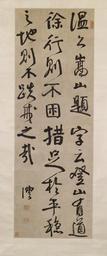 温公嵩山題字云登山有道
徐行則不困措足於平穩
之地則不跌戒之哉